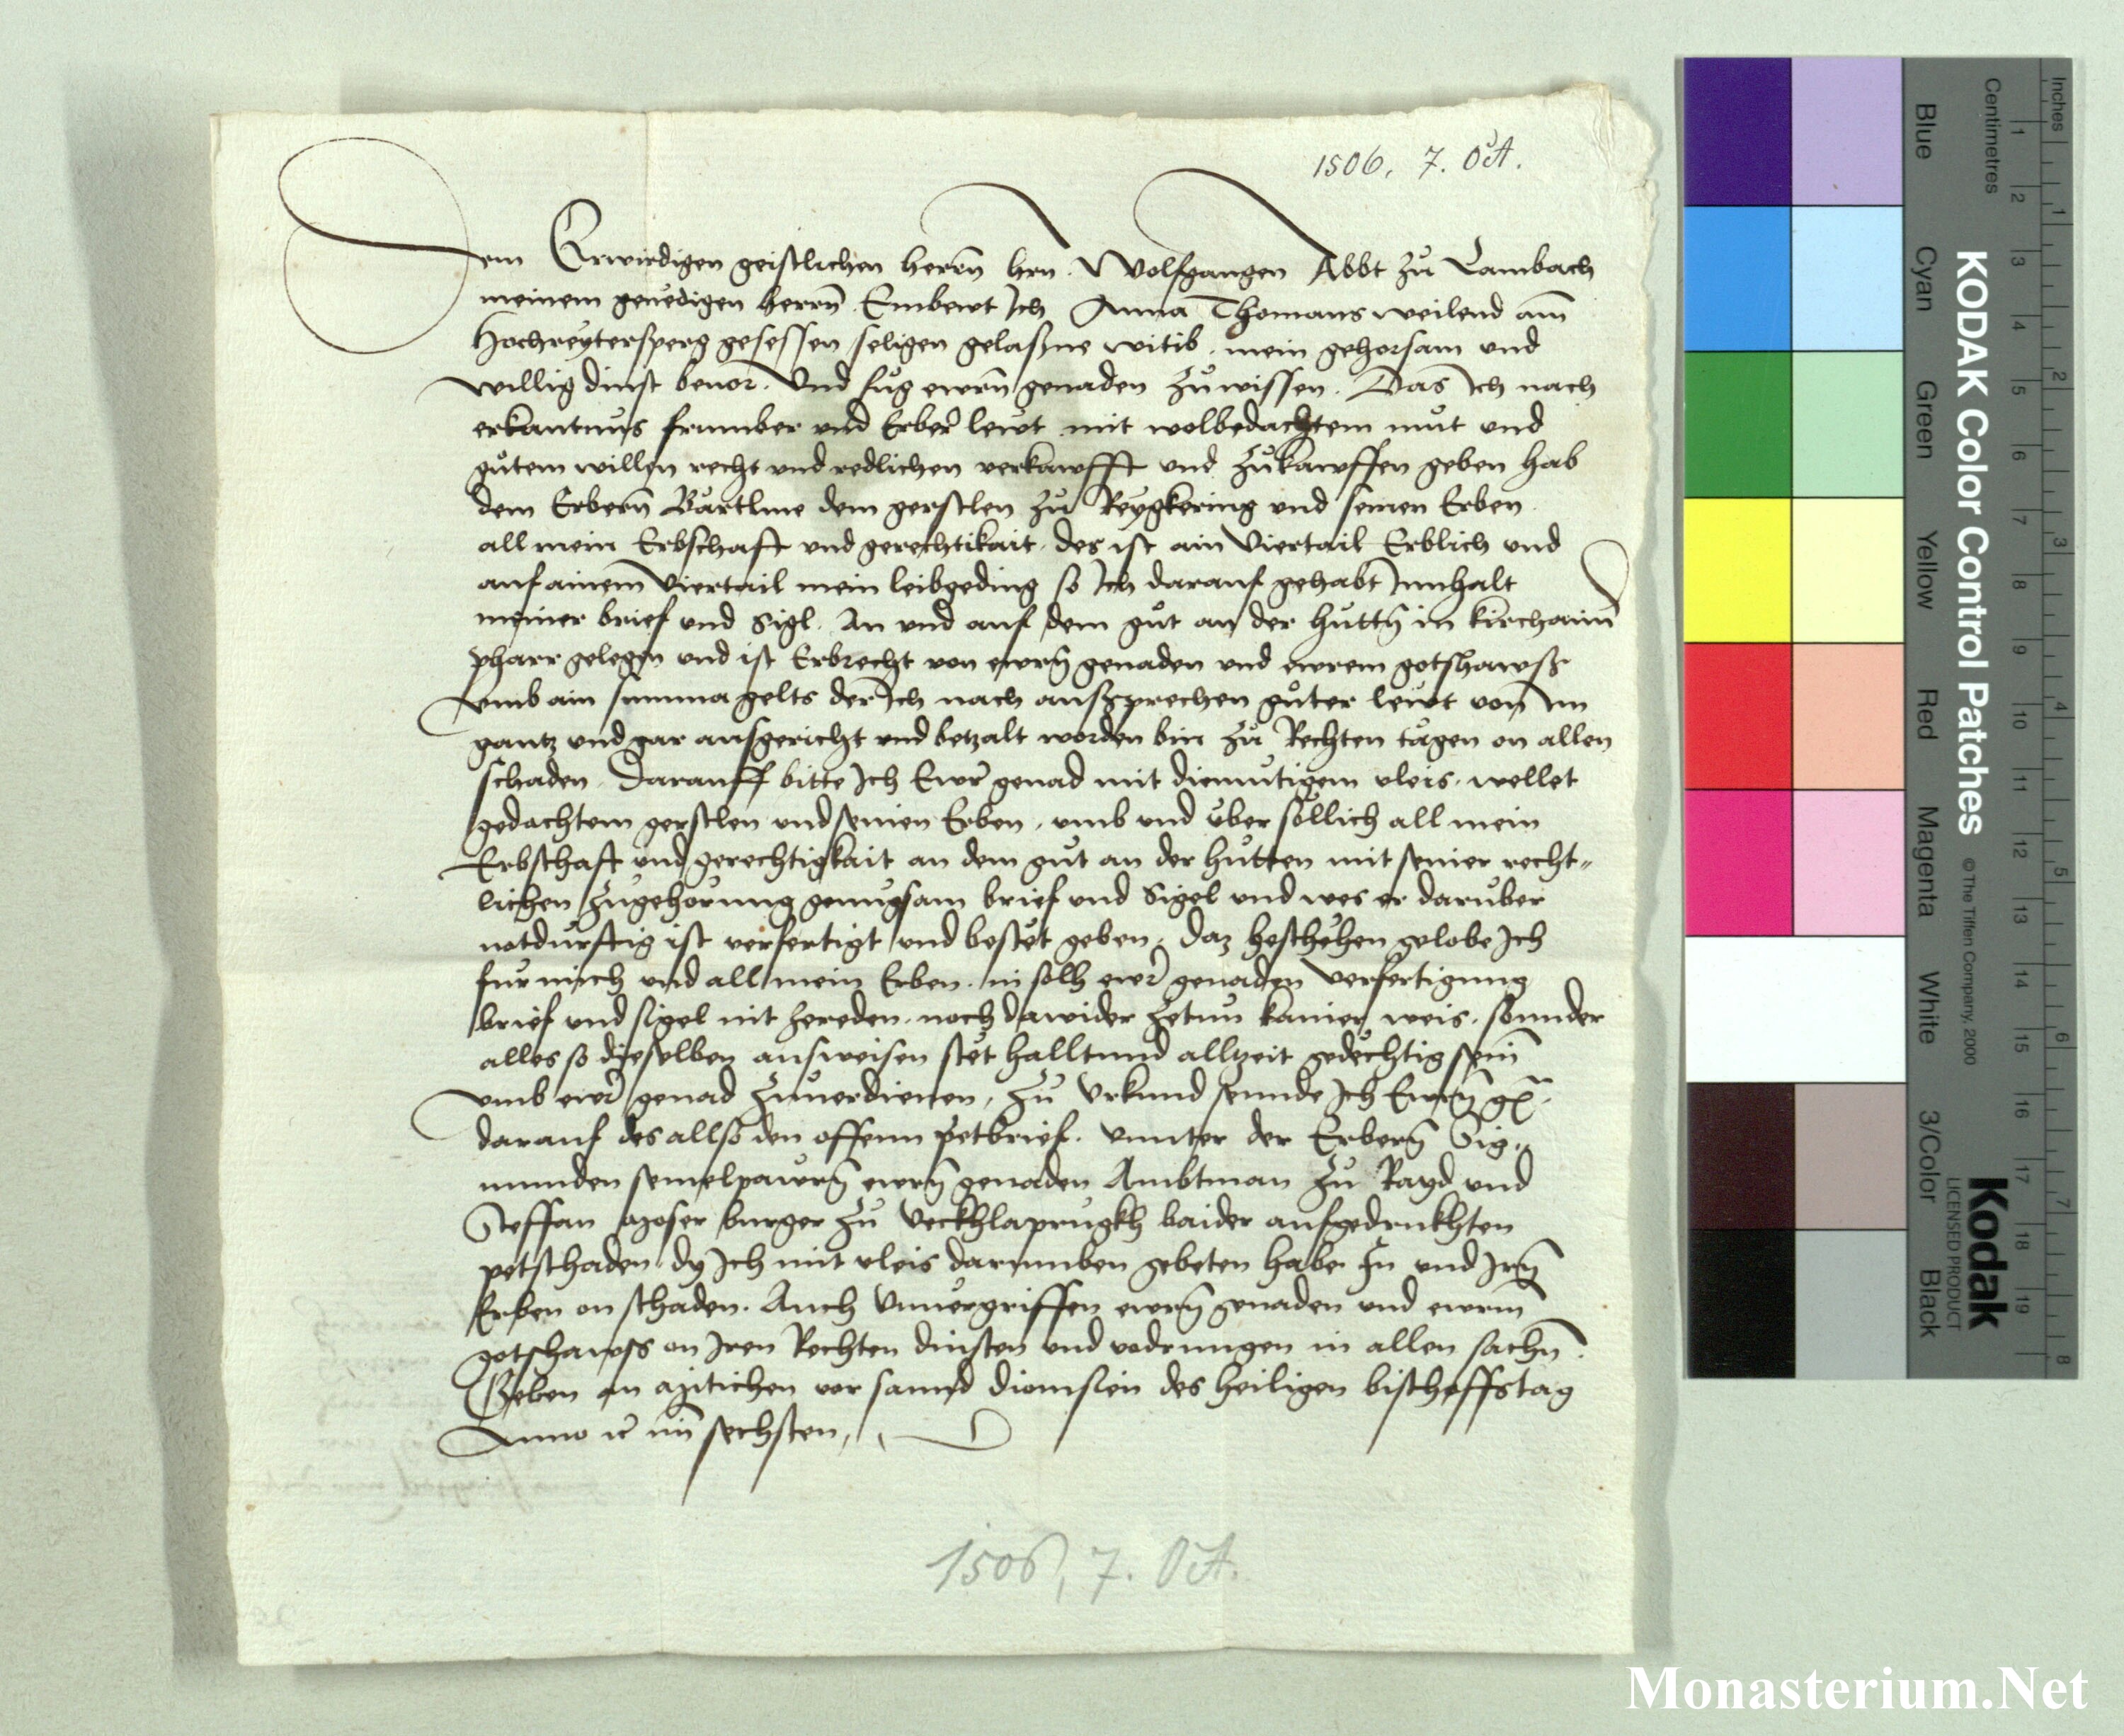 1506, 7. Oct.
Dem Erwirdigen geistlichen herrn̄ hrn. Wolfgangen Abbt zů Lambach
meinem genedigen herrn̄. Embewt Ich Anna Thomans weilend am̄
Hochreytersperg gesessen seligen gelaßne witib. mein gehorsam und
willig dinst beuor. Vnd fůg ewrn̄ genaden zůwissen. Das Ich nach
erkantnůs frumber vnd Erber lewt mit wolbedachtem můt vnd
gůtem willen recht vnd redlichen verkawfft vnd zůkawffen geben hab
dem Erbern̄ Bartlme dem gerstlen zů Reygkering vnd seinen Erben
all mein Erbschaft vnd gerechtikait. des ist ain Viertail Erblich vnd
auf ainem Viertail mein leibgeding so Ich darauf gehabt Innhalt
meiner brief vnd Sigl. An vnd auf dem gůt an der hůttn̄ in kirchaim̄
pharr gelegen vnd ist Erbrecht von ewrn̄ genaden vnd ewrem gotshawß
vmb ain summa gelts der Ich nach außsprechen gůter lewt von Im
gantz vnd gar ausgericht vnd betzalt worden bin zů Rechten tågen on allen
schaden. Darauff bitte Ich Ewr genad mit diemůtigem vleis. wellet
gedachtem gerstlen vnd seinen Erben. vmb vnd vber sőllich all mein
Erbschaft vnd gerechtigkait an dem gůt an der hůtten mit seiner recht„
lichen zůgehőrung genůgsam brief vnd Sigel vnd wes er darůber
notdůrftig ist verfertigt vnd bestět geben. Daz beschehen gelobe Ich
fůr mich vnd all mein Erben. in solh ewr genaden verfertigung
brief vnd sigel nit zereden. noch dawider zetun kainer weis. sonnder
alles so dieselben ausweisen stět hallt vnd alltzeit geděchtig sein̄
vmb ewr genad zuuerdienen. Zů Vrkund sennde Ich Ewrn̄ g̅.
darauf des allso den offenn petbrief. vnnter der Erbern̄ Sig„
munden semelpawrn̄ ewrn̄ genaden Ambtman zů Rayd vnd
Steffan Moser burger zů Veckhlaprugkh baider aufgedrukhten
petschaden dy Ich mit vleis darumben gebeten habe In vnd Irn̄
Erben on schaden. Auch Vnuergriffen ewrn̄ genaden vnd ewrm̄
gotshawss an Iren Rechten dinsten vnd vodrungen in allen sachn̄.
Geben an Mitichen vor sannd Dionisien des heiligen bischoffstag
Anno im̄ sechsten.
1506, 7. Oct.
KODAK Color Control Patches
© The Tiffen Company, 2000
Kodak
LICENSED PRODUCT
Blue
Cyan
Green
Yellow
Red
Magenta
White
3/Color
Black
Inches
Centimetres
1 2 3 4 5 6 7 8 9 10 11 12 13 14 15 16 17 18 19
1 2 3 4 5 6 7 8
Monasterium.Net